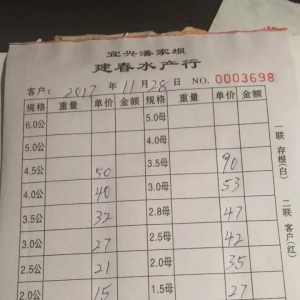 宜兴潘家坝
建春水产行
客户: 2017 年 11 月 28 日 NO. 0003698
规格 重量 单价 金额 规格 重量 单价 金额
6.0公 5.0母
5.0公 4.0母
4.5公 50 3.5母 90
4.0公 40 3.0母 53
3.5公 32 2.8母 47
3.0公 27 2.5母 42
2.5公 21 2.0母 35
2.0公 15 1.5母 27
一联 存根(白)
二联 客户(红)